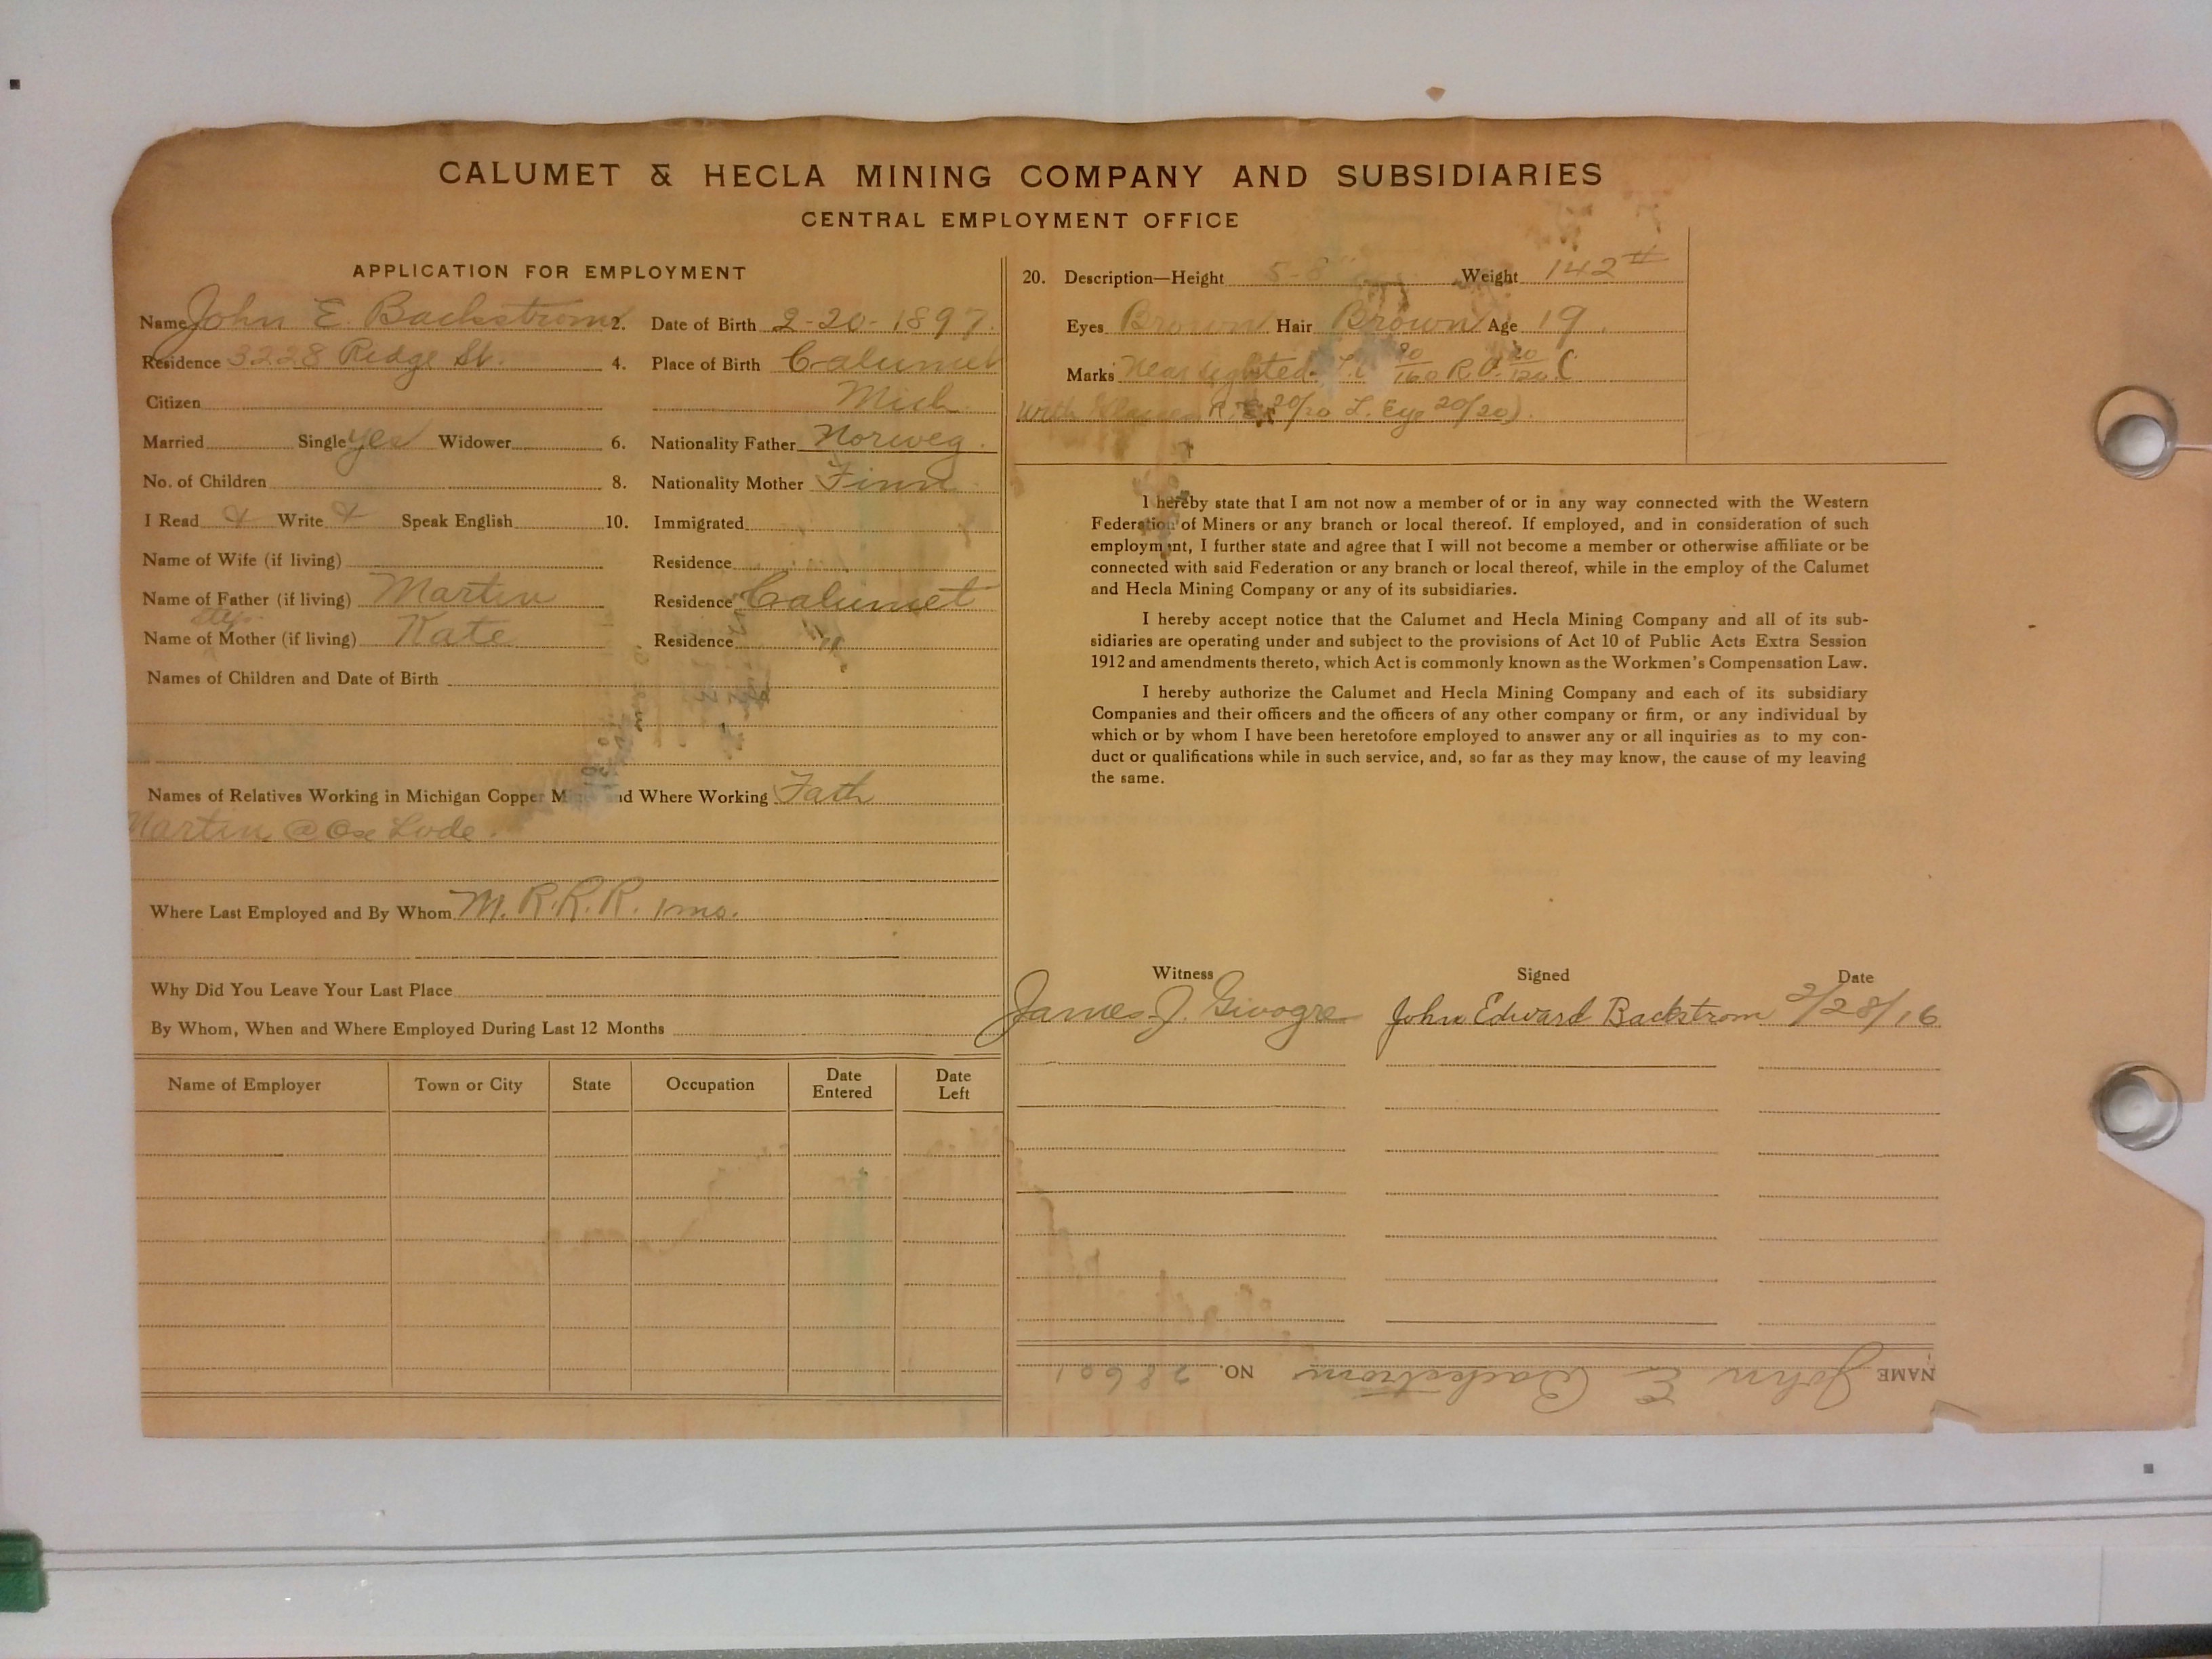 CALUMET & HECLA MINING COMPANY AND SUBSIDIARIES
CENTRAL EMPLOYMENT OFFICE
APPLICATION FOR EMPLOYMENT
Name John E. Backstrom 2. Date of Birth 2-20-1897.
Residence 3228 Ridge St. 4. Place of Birth Calumet
Citizen Mich.
Married Single yes Widower 6. Nationality Father Norweg.
No. of Children 8. Nationality Mother Finn
I Read Write Speak English 10. Immigrated
Name of Wife (if living) Residence
Name of Father (if living) Martin Residence Calumet
step
Name of Mother (if living) Kate Residence "
Names of Children and Date of Birth
Names of Relatives Working in Michigan Copper M nd Where Working Fath
Martin @ Lode.
Where Last Employed and By Whom M. R.R.R. 1 mo.
Why Did You Leave Your Last Place
By Whom, When and Where Employed During Last 12 Months
Name of Employer Town or City State Occupation Date Entered Date Left
20. Description—Height 5-8" Weight 142#
Eyes Brown Hair Brown Age 19.
Marks Near sighted 160 R 120 (
With R. E. 20/20 L. Eye 20/20).
I hereby state that I am not now a member of or in any way connected with the Western
Federation of Miners or any branch or local thereof. If employed, and in consideration of such
employment, I further state and agree that I will not become a member or otherwise affiliate or be
connected with said Federation or any branch or local thereof, while in the employ of the Calumet
and Hecla Mining Company or any of its subsidiaries.
I hereby accept notice that the Calumet and Hecla Mining Company and all of its sub-
sidiaries are operating under and subject to the provisions of Act 10 of Public Acts Extra Session
1912 and amendments thereto, which Act is commonly known as the Workmen's Compensation Law.
I hereby authorize the Calumet and Hecla Mining Company and each of its subsidiary
Companies and their officers and the officers of any other company or firm, or any individual by
which or by whom I have been heretofore employed to answer any or all inquiries as to my con-
duct or qualifications while in such service, and, so far as they may know, the cause of my leaving
the same.
Witness Signed Date
James J. John Edward Backstrom 2/28/16
NAME John E. Backstrom NO. 28601